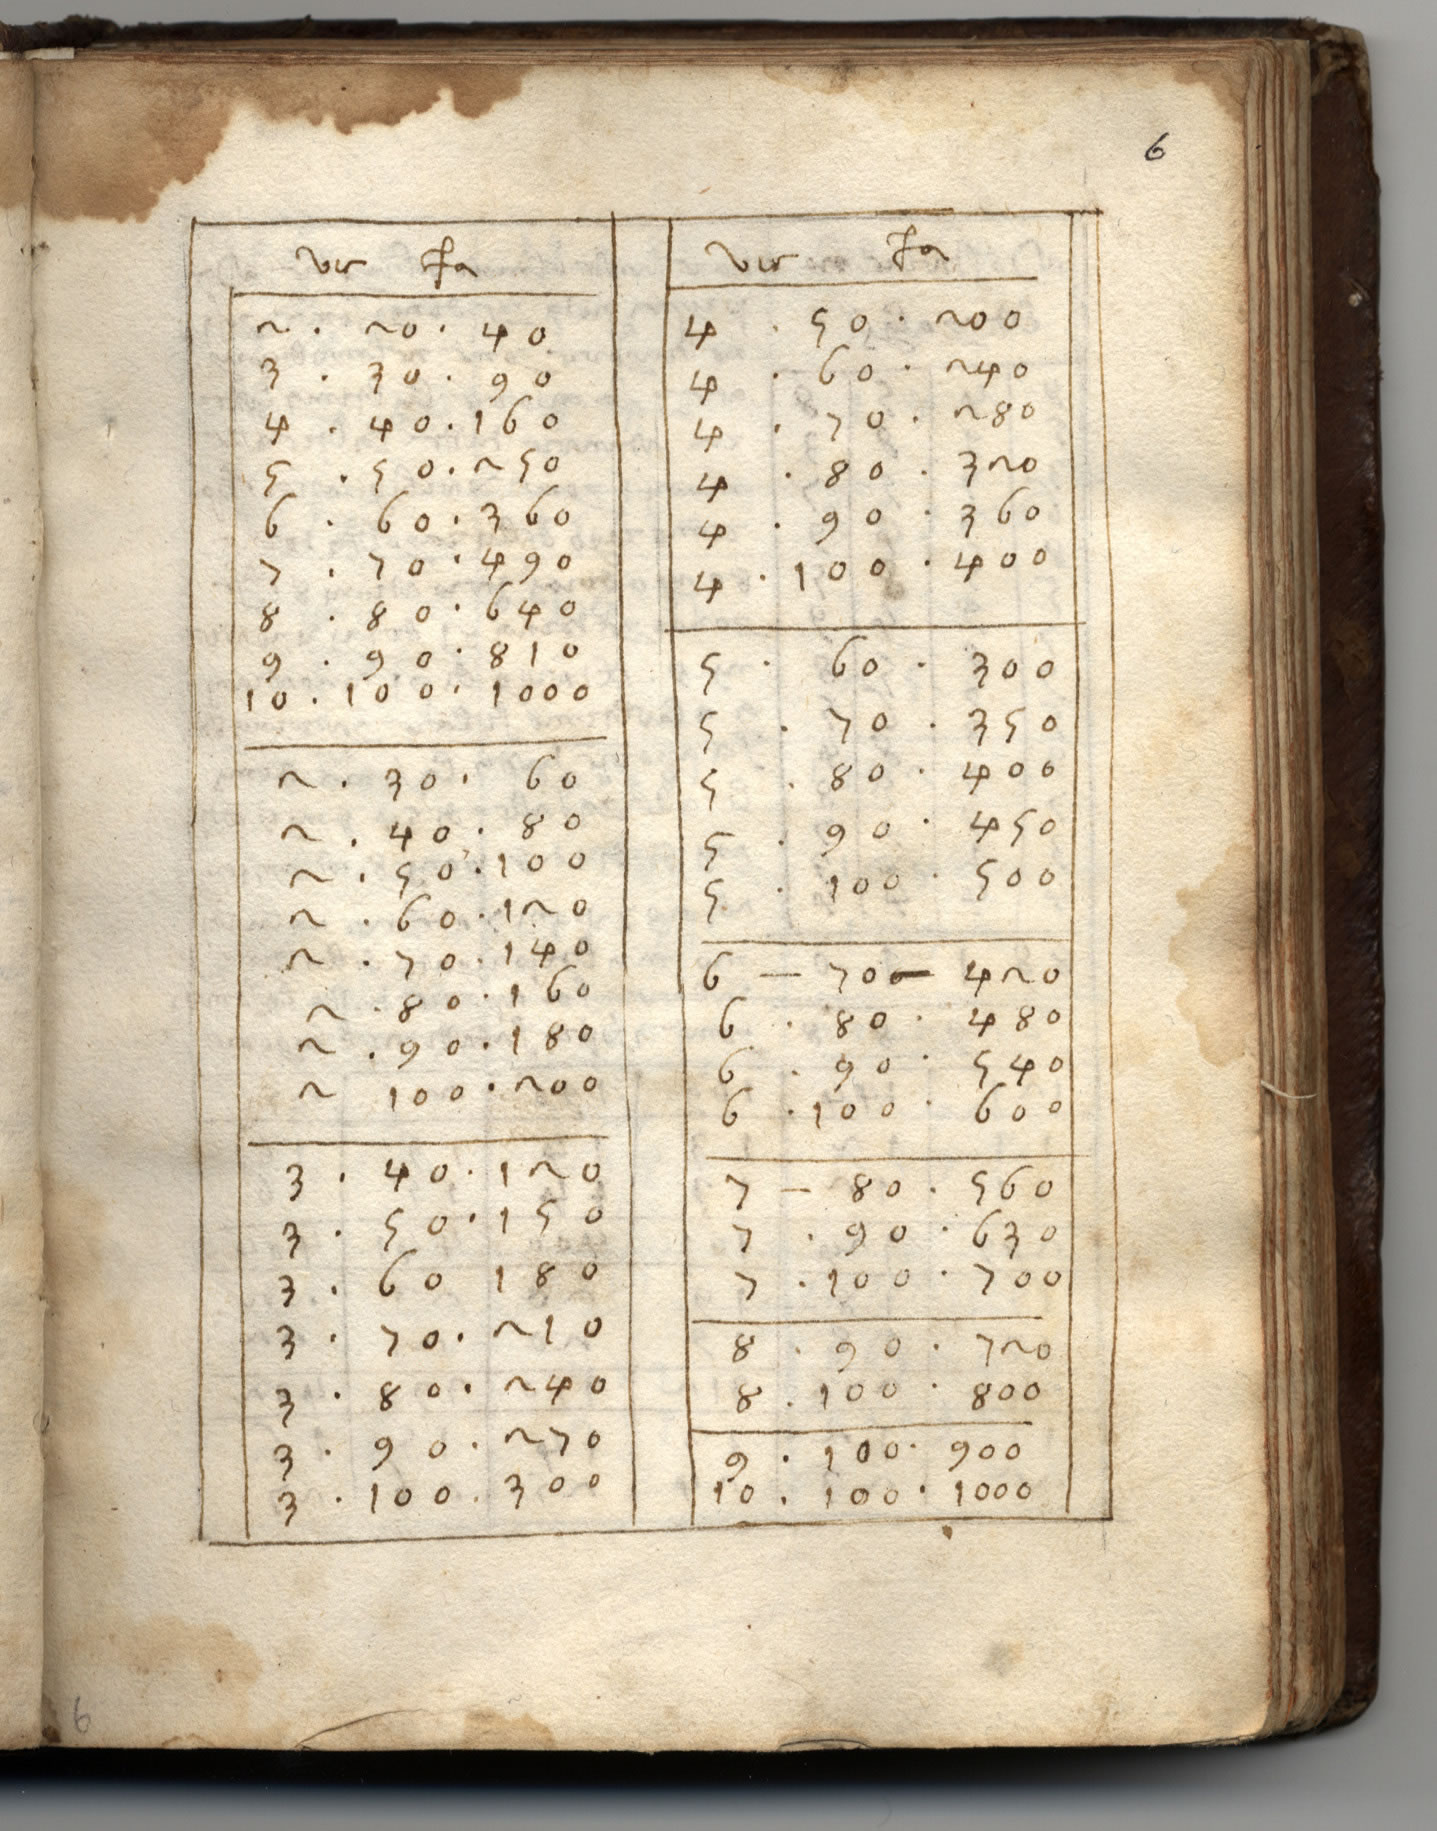 6
via fa
2 . 20 . 40
3 . 30 . 90
4 . 40 . 160
5 . 50 . 250
6 . 60 . 360
7 . 70 . 490
8 . 80 . 640
9 . 90 . 810
10 . 100 . 1000
2 . 30 . 60
2 . 40 . 80
2 . 50 . 100
2 . 60 . 120
2 . 70 . 140
2 . 80 . 160
2 . 90 . 180
2 100 . 200
3 . 40 . 120
3 . 50 . 150
3 . 60 180
3 . 70 . 210
3 . 80 . 240
3 . 90 . 270
3 . 100 . 300
via fa
4 . 50 . 200
4 . 60 . 240
4 . 70 . 280
4 . 80 . 320
4 . 90 . 360
4 . 100 . 400
5 . 60 . 300
5 . 70 . 350
5 . 80 . 400
5 . 90 . 450
5 . 100 . 500
6 — 70 — 420
6 . 80 . 480
6 . 90 . 540
6 . 100 . 600
7 — 80 . 560
7 . 90 . 630
7 . 100 . 700
8 . 90 . 720
8 . 100 . 800
9 . 100 . 900
10 . 100 . 1000
6